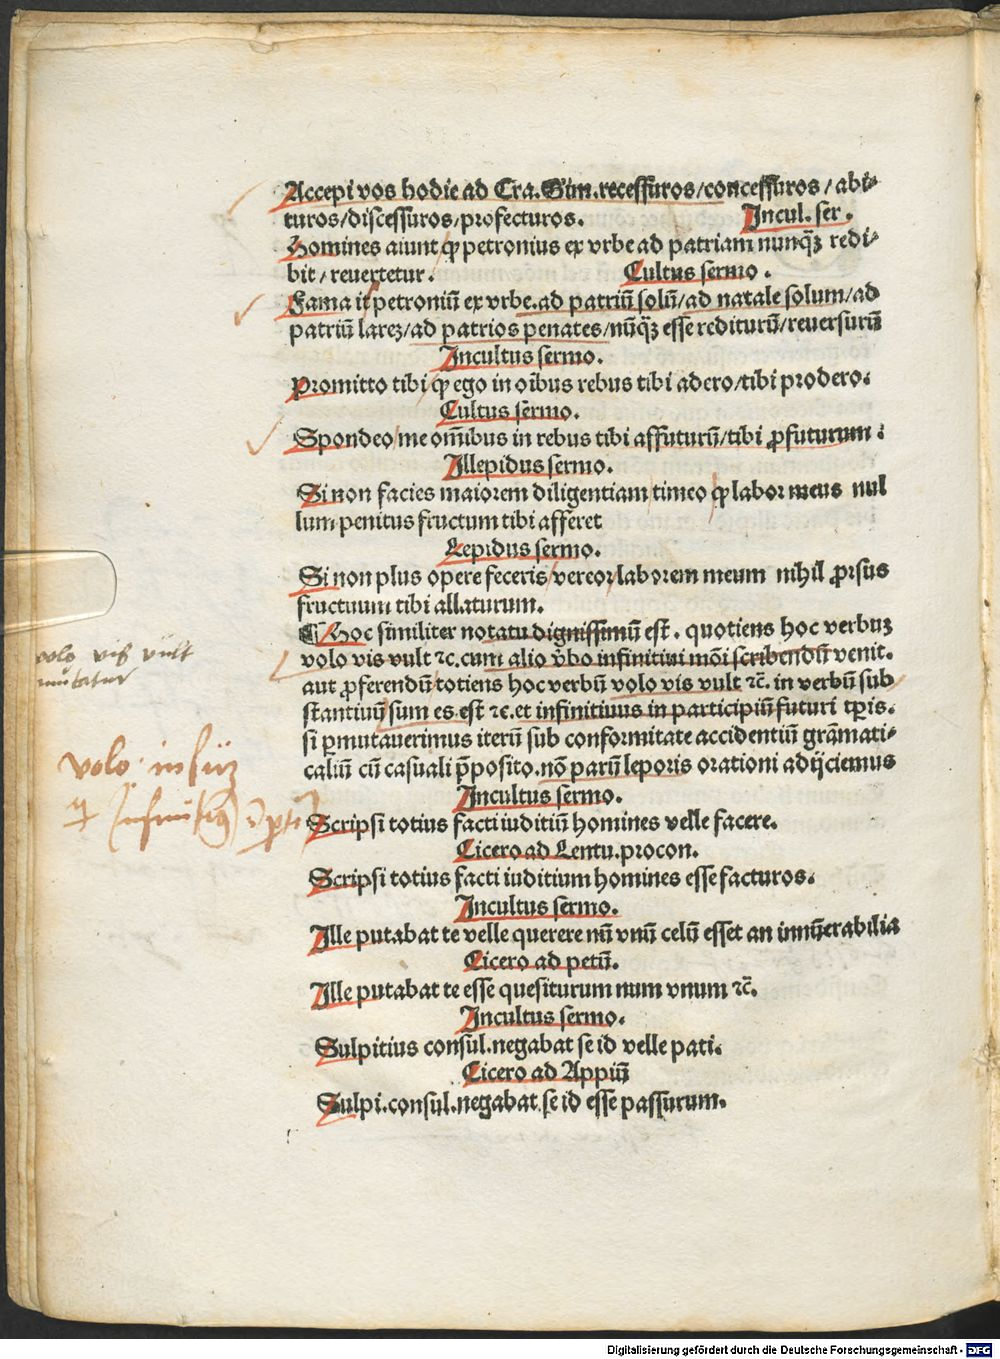 Accepi vos hodie ad Cra. Sim. recessuros/concessuros/abi-
turos/discessuros/profecturos. Incul. ser.
Homines aiunt ꝙ petronius ex vrbe ad patriam nunq̃ꝫ redi-
bit/reuertetur. Cultus sermo.
Fama it petroniũ ex vrbe. ad patriũ solũ/ad natale solum/ad
patriũ lareꝫ/ad patrios penates/nũq̃ꝫ esse rediturũ/reuersurũ
Incultus sermo.
Promitto tibi ꝙ ego in oĩbus rebus tibi adero/tibi prodero.
Cultus sermo.
Spondeo me om̃ibus in rebus tibi affuturũ/tibi ꝓfuturum.
Illepidus sermo.
Si non facies maiorem diligentiam timeo ꝙ labor meus nul
lum penitus fructum tibi afferet
Lepidus sermo.
Si non plus opere feceris/vereor/laborem meum nihil ꝓrsus
fructuum tibi allaturum.
¶ Hoc similiter notatu dignissimũ est. quotiens hoc verbuꝫ
volo vis vult ⁊c. cum alio v̾bo infinitiui mõi scribendũ venit.
aut ꝓferendũ totiens hoc verbũ volo vis vult ⁊c̃. in verbũ sub
stantiuũ sum es est ⁊c. et infinitiuus in participiũ futuri tp̃is.
si ꝑmutauerimus iterũ sub conformitate accidentiũ grãmati-
caliũ cũ casuali p̃posito. nõ parũ leporis orationi adijciemus
Incultus sermo.
Scripsi totius facti iuditiũ homines velle facere.
Cicero ad Lentu. procon.
Scripsi totius facti iuditium homines esse facturos.
Incultus sermo.
Ille putabat te velle querere nũ vnũ celũ esset an innũerabilia
Cicero ad petũ.
Ille putabat te esse quesiturum num vnum ⁊c̃.
Incultus sermo.
Sulpitius consul. negabat se id velle pati.
Cicero ad Appiũ
Sulpi. consul. negabat se id esse passurum.
volo vis vult
mutatur
volo in
Digitalisierung gefördert durch die Deutsche Forschungsgemeinschaft - DFG